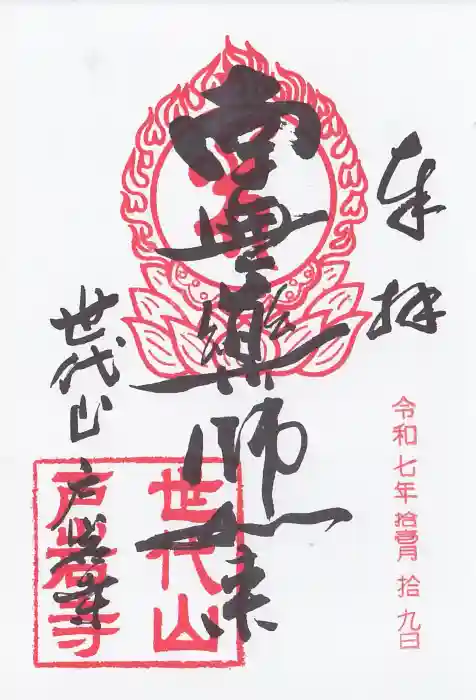 奉拝
令和七年拾壹月拾九日
薬師如来
世代山
戸岩寺
世代山
戸岩寺